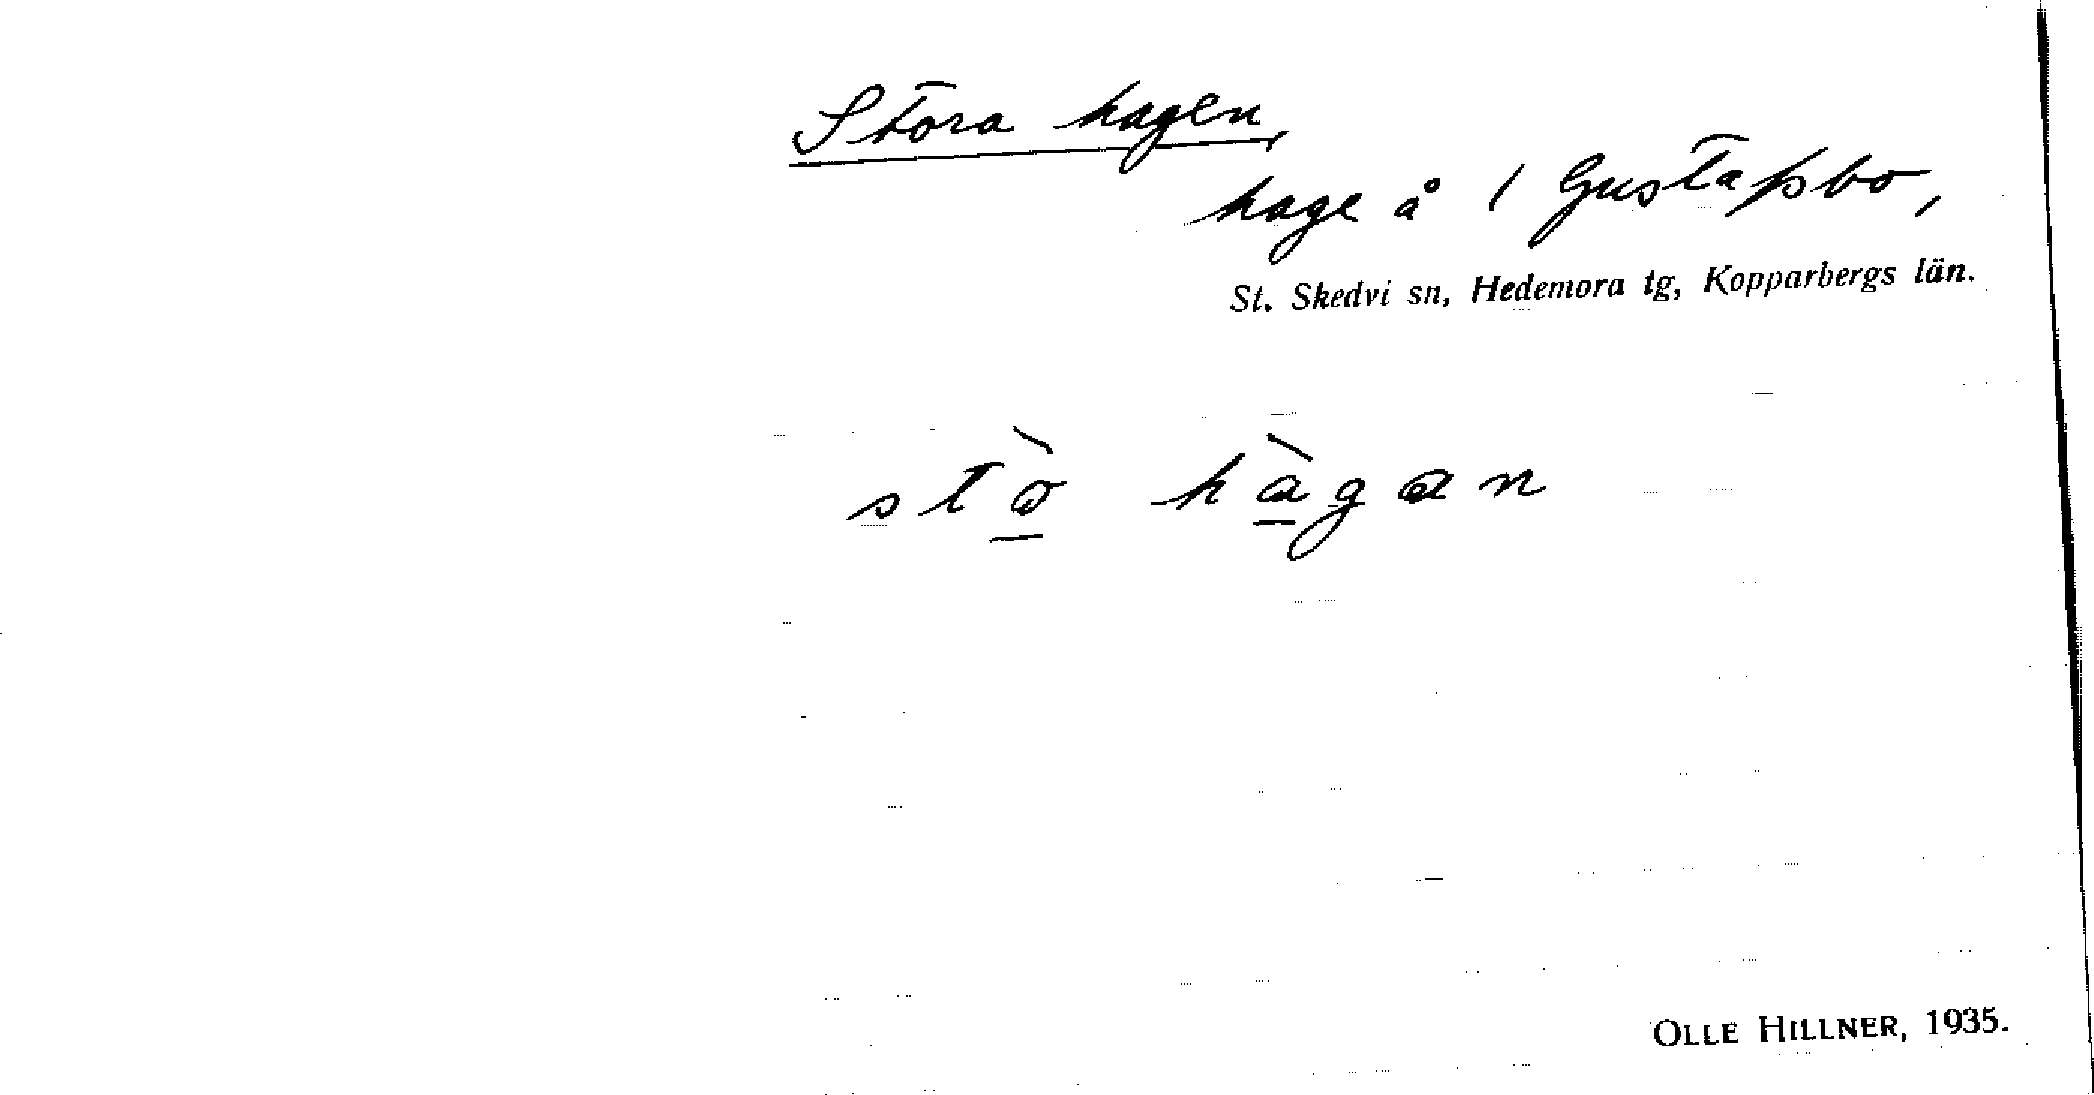 Stora hagen,
hage å 1 Gustapsbo,
St. Skedvi sn, Hedemora tg, Kopparbergs län.
stò hàgan
OLLE HILLNER, 1935.